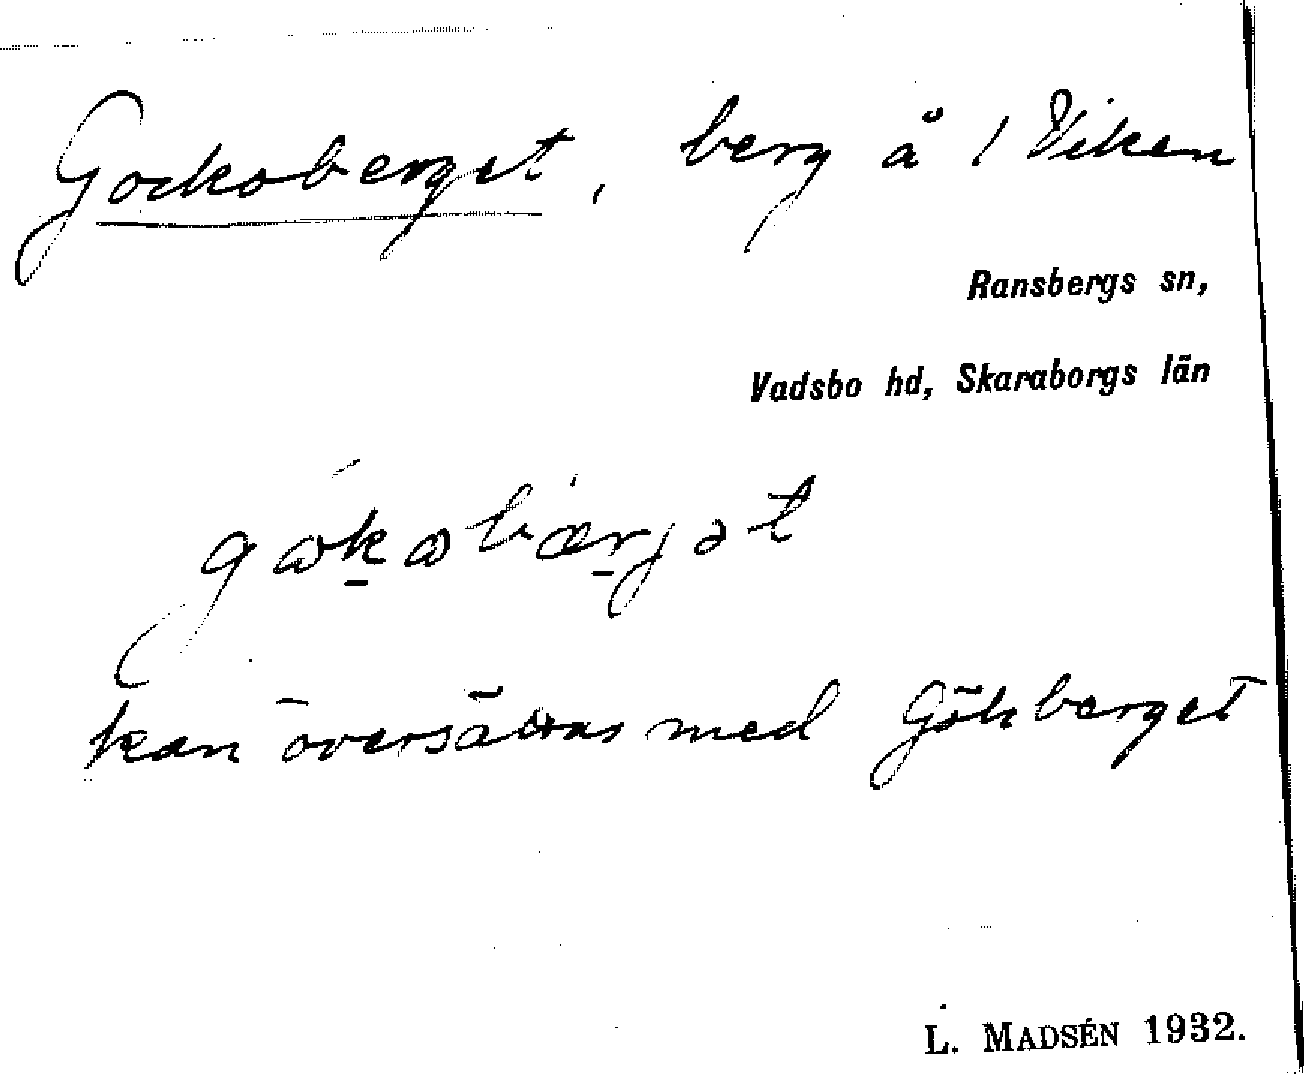 Gockoberget, berg å 1 Viken
Ransbergs sn,
Vadsbo hd, Skaraborgs län
kan översättas med Gökberget
L. MADSÉN 1932.